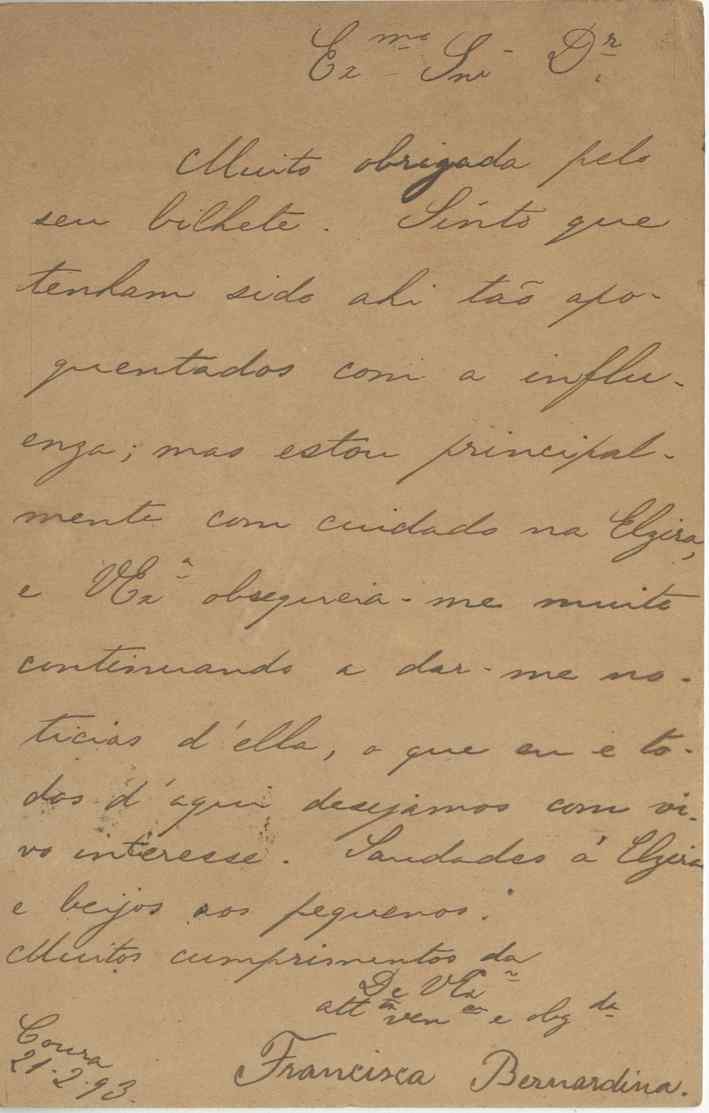 Exmo Snr Dr.
Muito obrigada pelo
seu bilhete. Sinto que
tenham sido ahi tão apo-
quentados com a influ-
enza; mas estou principal-
mente com cuidado na Elzira,
e VExa obsequeia-me muito
continuando a dar-me no-
ticias d'ella, o que eu e to-
dos d'aqui desejamos com vi-
vo interesse. Saudades á Elzira
e beijos aos pequenos.
Muitos cumprimentos da
De VExa
attta venora e obgda
Coura
21-2-93.
Francisca Bernardina.